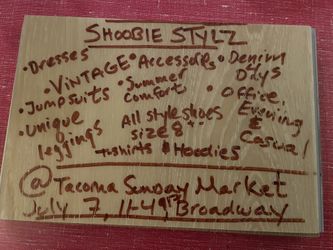 SHOOBIE STYLZ
• Dresses
• VINTAGE • Accessories
• Denim Days
• Jumpsuits
• Summer comfort
• Office, Evening & Casual
• Unique leggings
All style shoes size 8
T-shirts & Hoodies
@ Tacoma Sunday Market
July 7, 11-4 Broadway